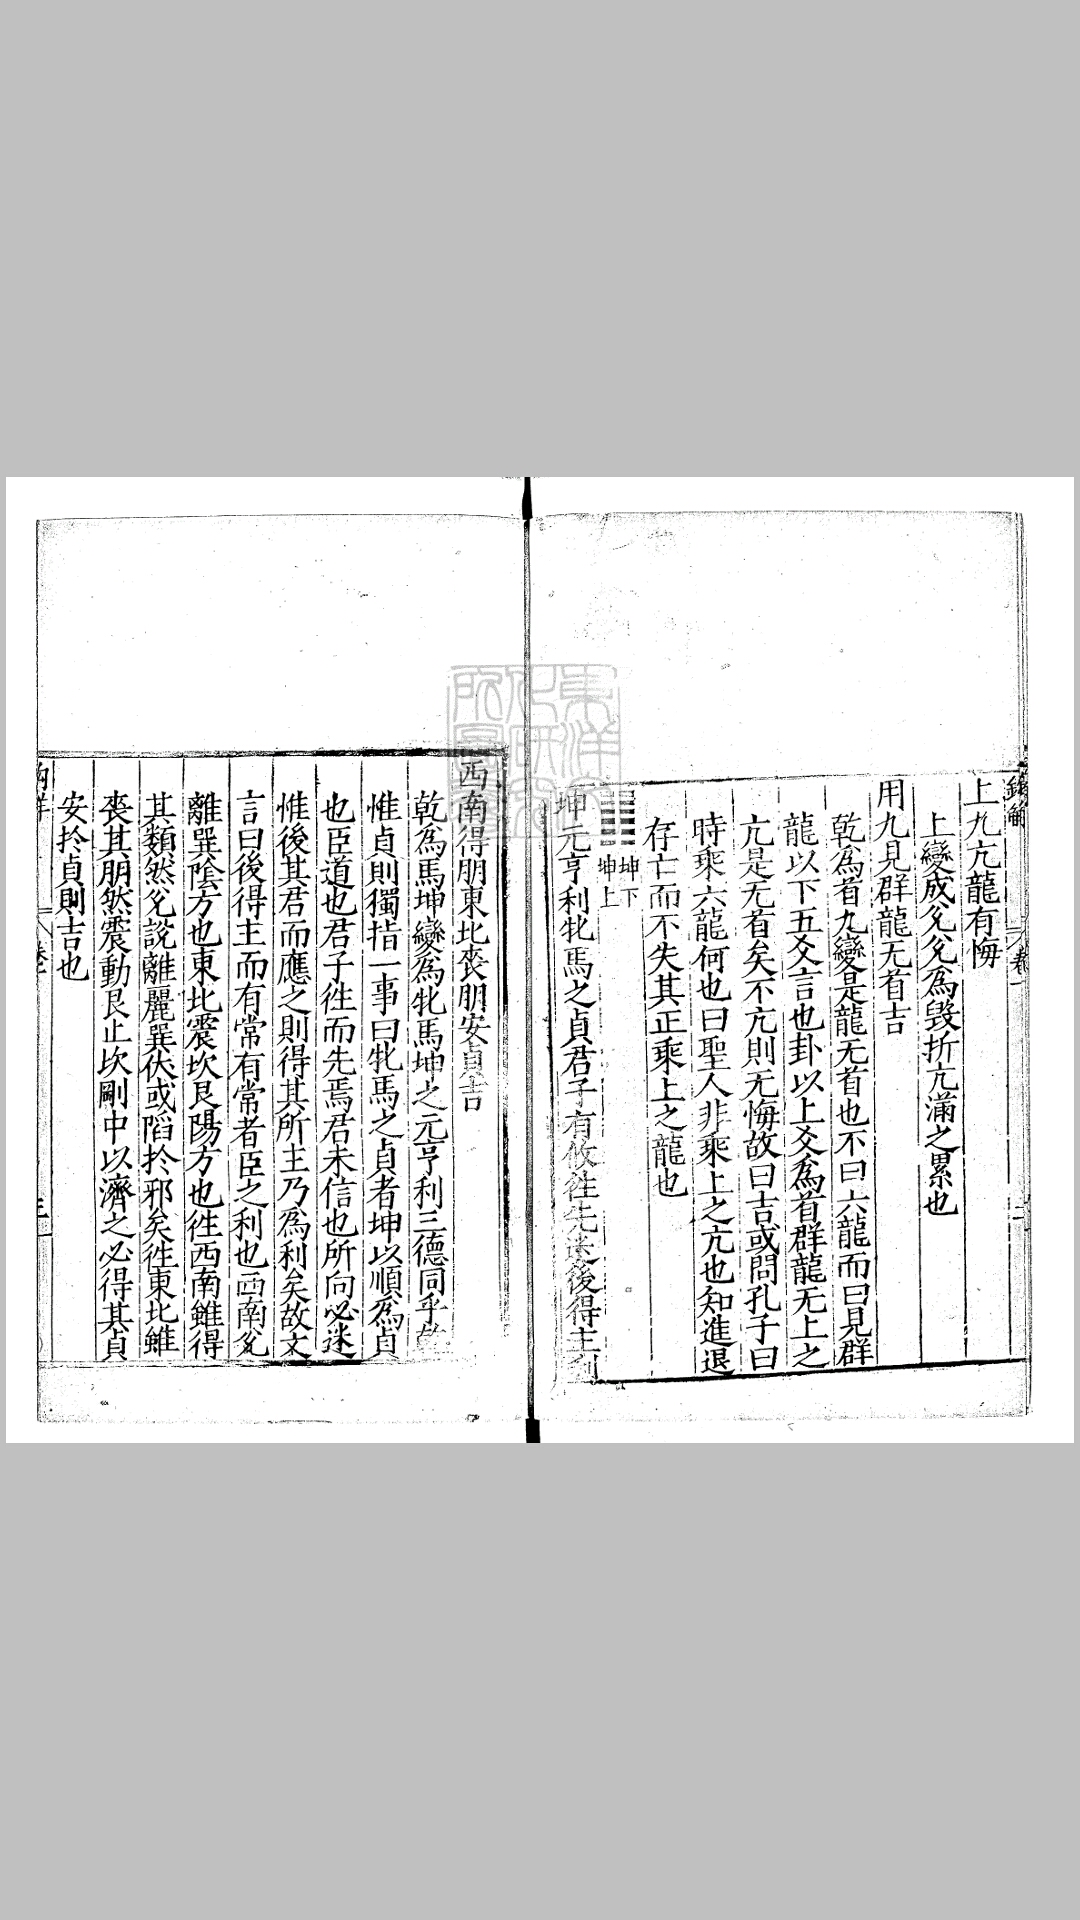 上九亢龍有悔
上變成兊兊爲毀折亢滿之累也
用九見群龍无首吉
乾爲首九變是龍无首也不曰六龍而曰見群
龍以下五爻言也卦以上爻爲首群龍无上之
亢是无首矣不亢則无悔故曰吉或問孔子曰
時乘六龍何也曰聖人非乘上之亢也知進退
存亡而不失其正乘上之龍也
坤下
坤上
坤元亨利牝馬之貞君子有攸往先迷後得主利
西南得朋東北喪朋安貞吉
乾爲馬坤變爲牝馬坤之元亨利三德同乎乾
惟貞則獨指一事曰牝馬之貞者坤以順爲貞
也臣道也君子徃而先焉君未信也所向必迷
惟後其君而應之則得其所主乃爲利矣故文
言曰後得主而有常有常者臣之利也西南兊
離巽陰方也東北震坎艮陽方也徃西南雖得
其類然兊說離麗巽伏或陷於邪矣徃東北雖
喪其朋然震動艮止坎剛中以濟之必得其貞
安於貞則吉也
三